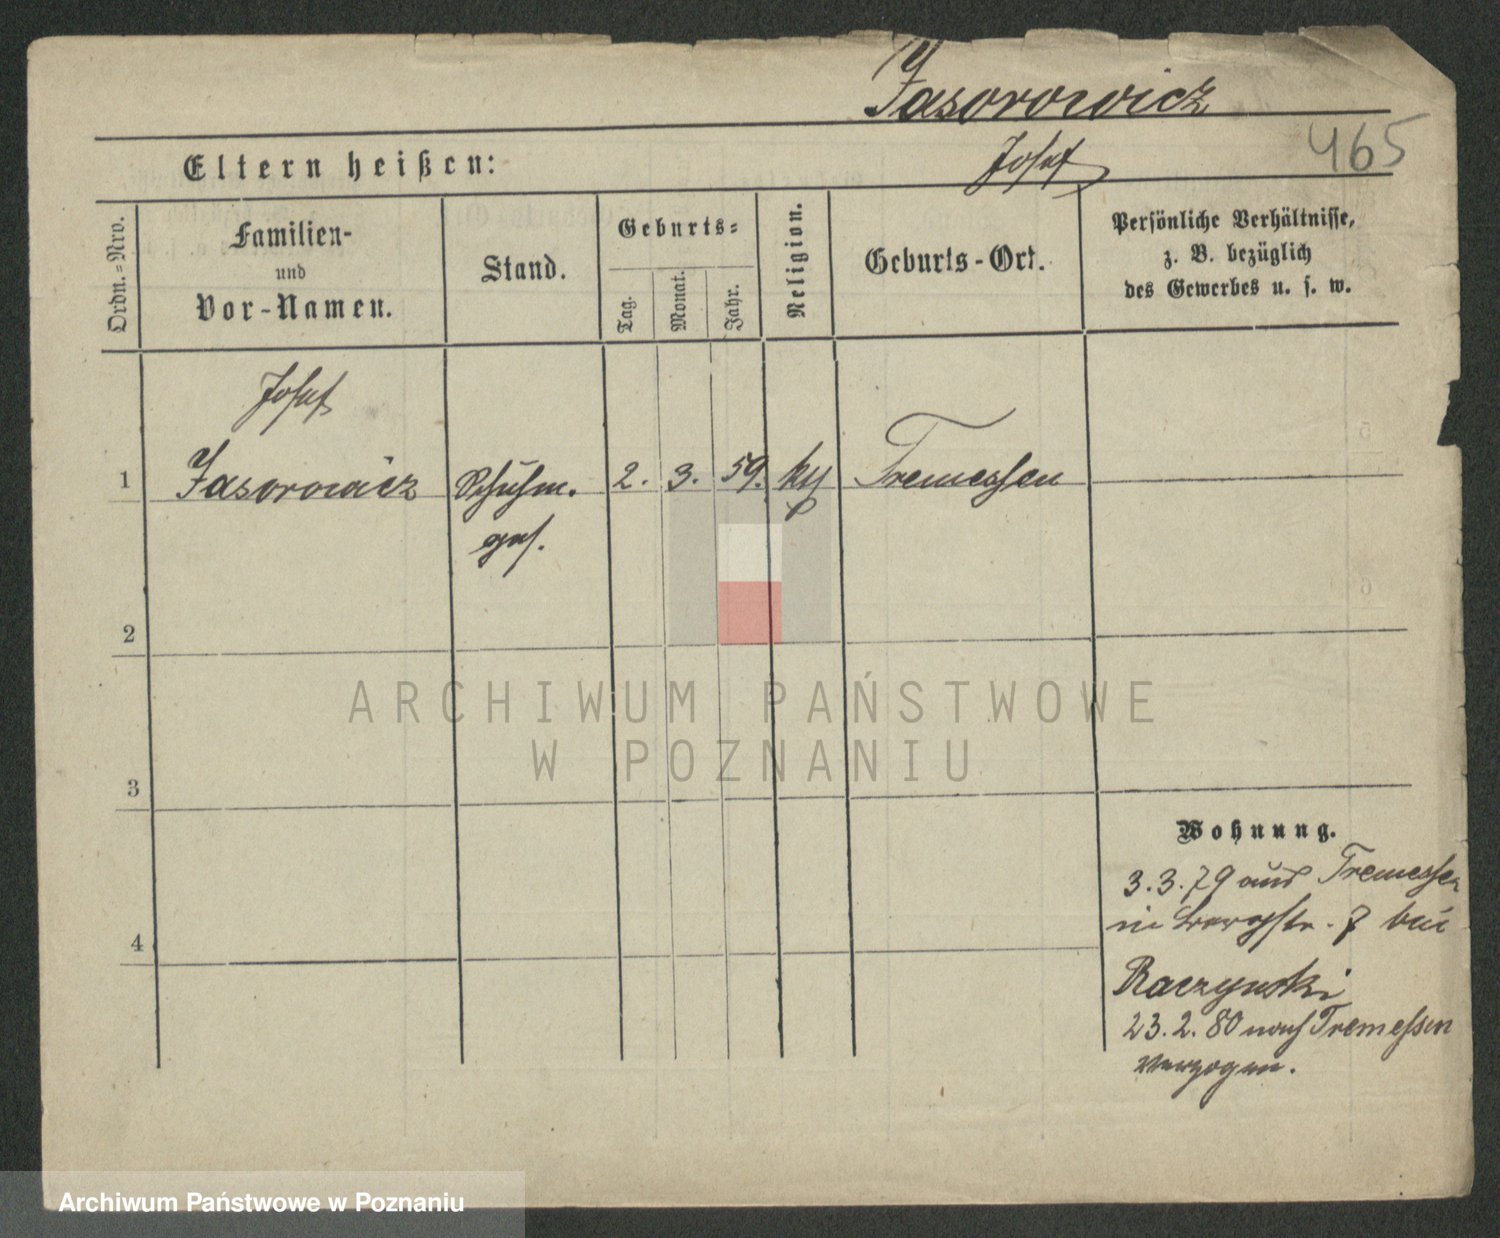 Jasorowicz
Josef
465
Eltern heißen:
Ordn.-Nro.
Familien-
und
Vor-Namen.
Stand.
Geburts-
Tag.
Monat.
Jahr.
Religion.
Geburts-Ort.
Persönliche Verhältnisse,
z. B. bezüglich
des Gewerbes u. s. w.
Josef
1 Jasorowicz Schuhm. 2. 3. 59. Tremessen
ges.
2
3
4
Wohnung.
3.3.79 aus Tremessen
in 7 bei
Raczynski
23.2.80 nach Tremessen
verzogen.
ARCHIWUM PAŃSTWOWE
W POZNANIU
Archiwum Państwowe w Poznaniu